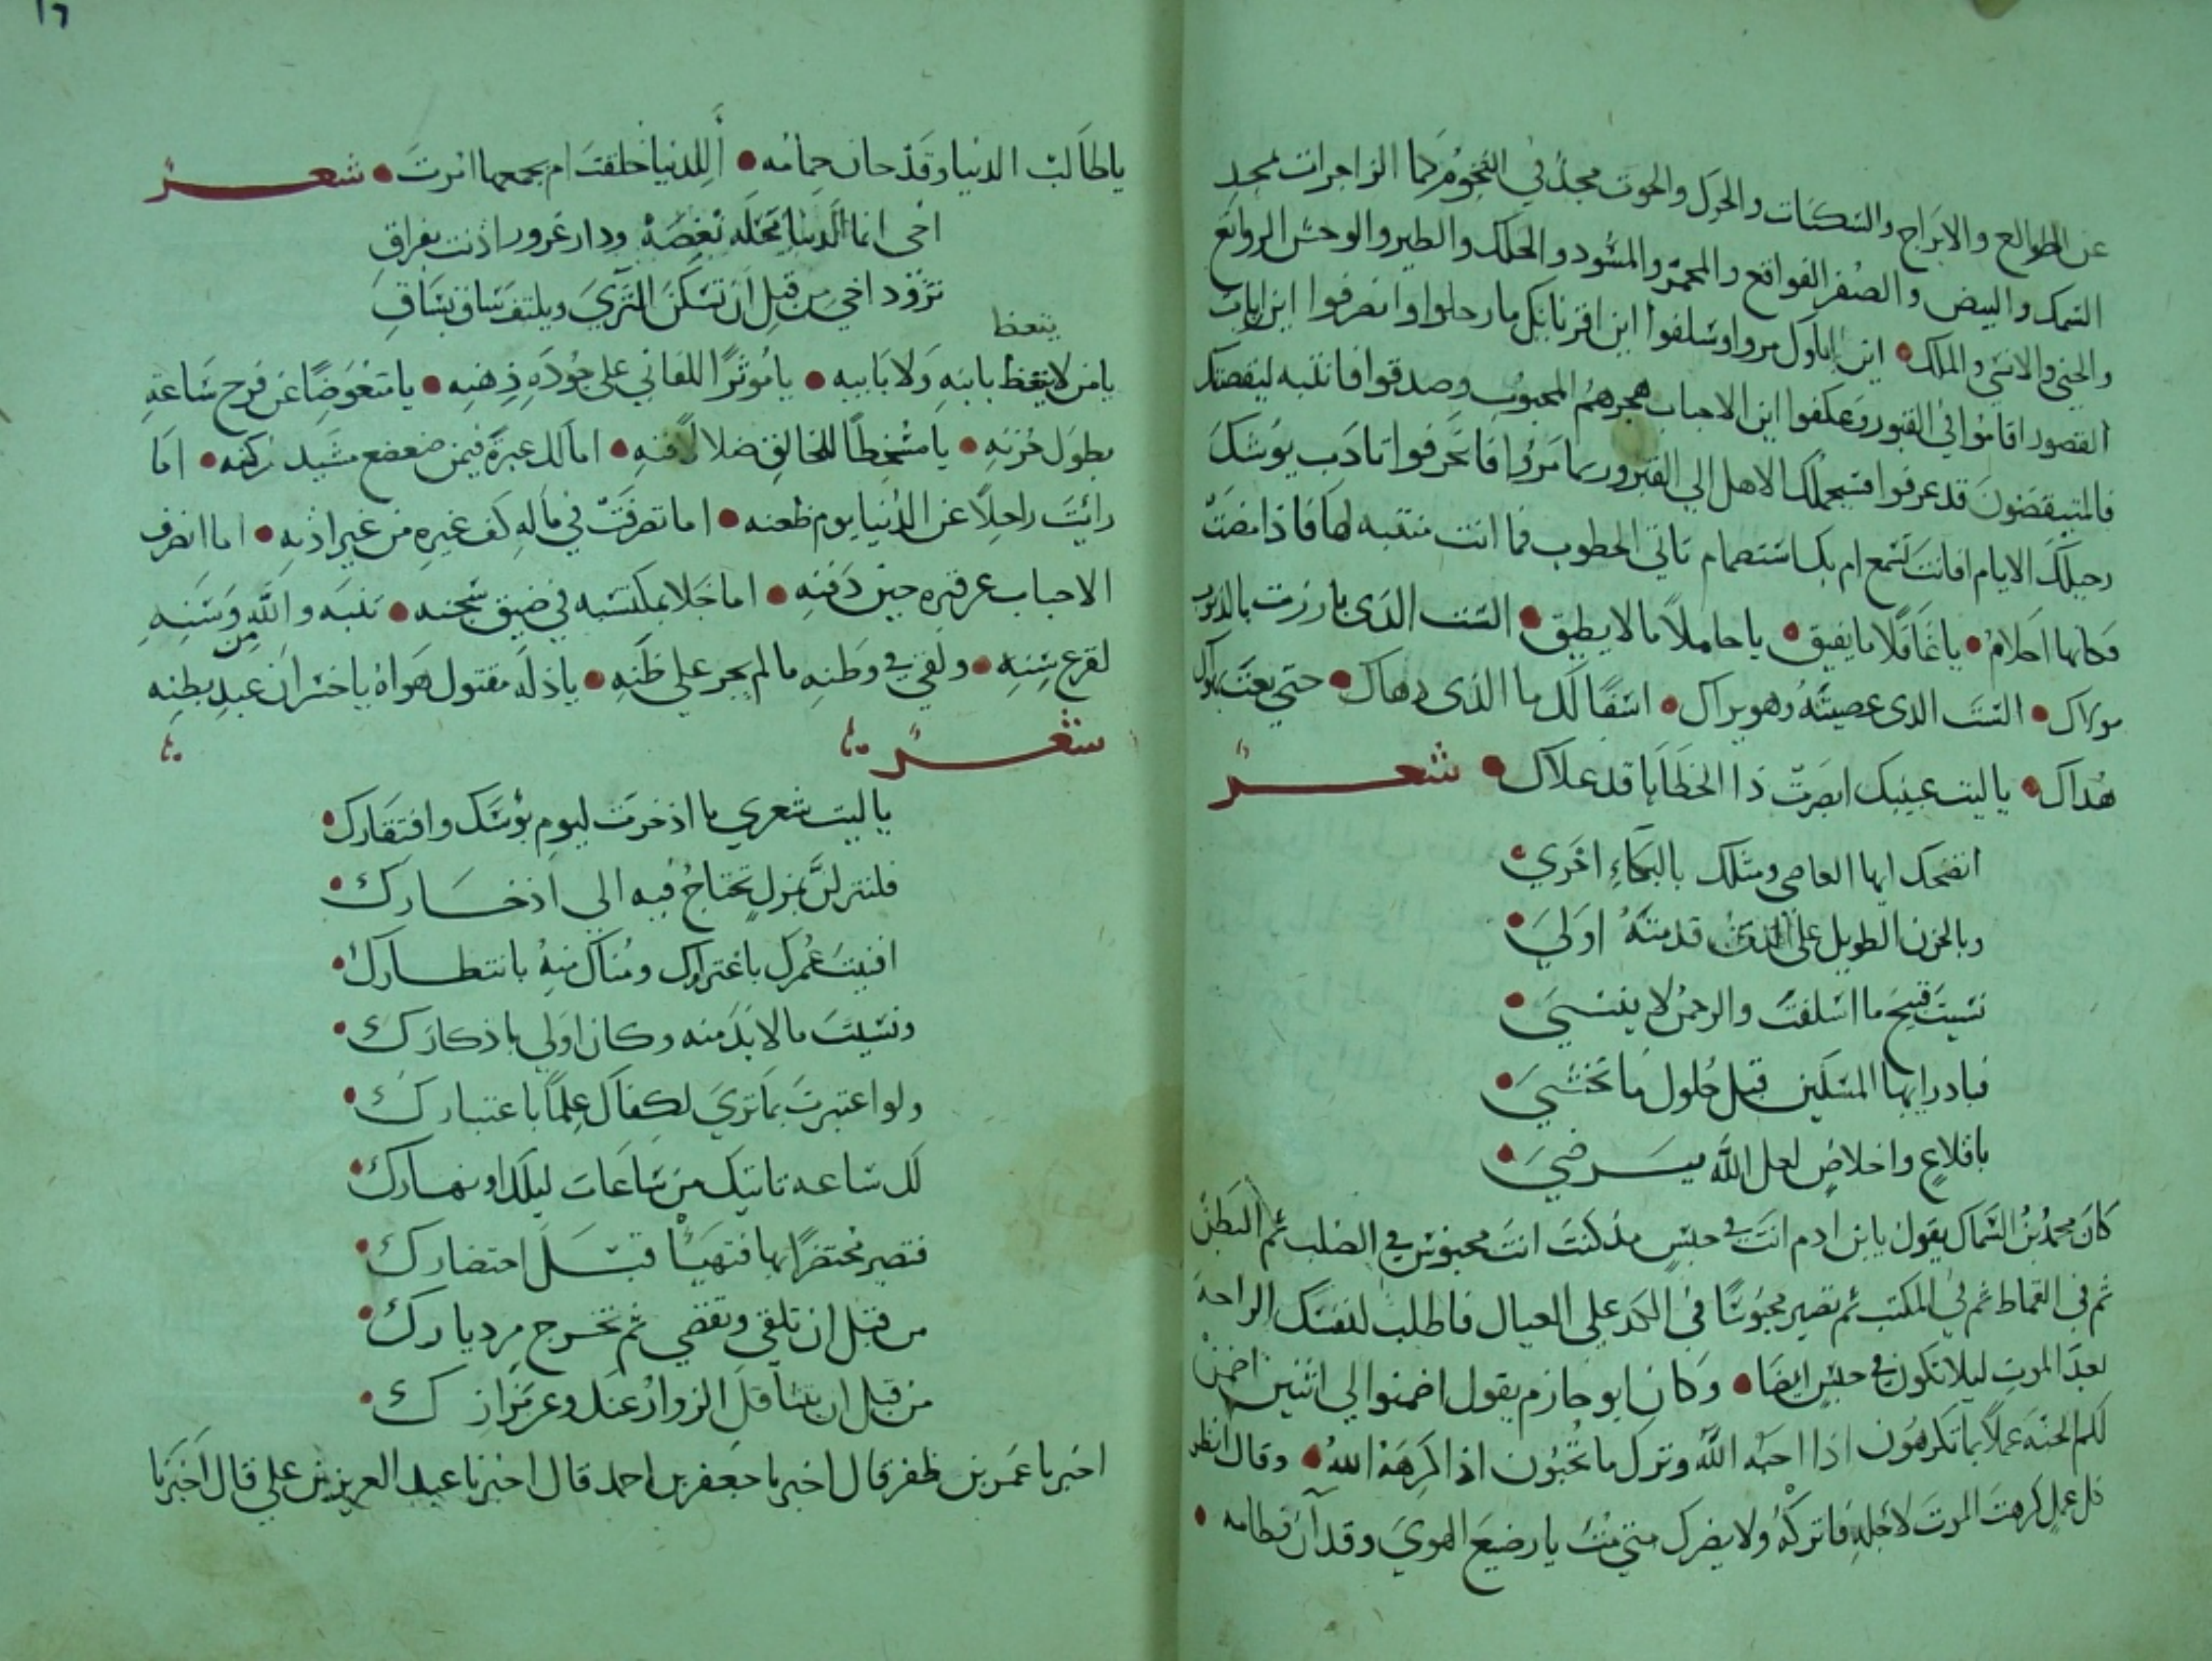 عن الطوالع والابراج والسكنات والحرك والحوت مجد في التخوم كما الزاجرات تجد
السمك والبيض والصفر الفواقع والمحمر والمسود والحلك والطير والوحش الرواتع
والجني والانسي والملك • اين الاول مروا وسلفوا اين اقرنا بكل ما رحلوا وانصرفوا اين ارباب
القصور اقاموا في القبور وعكفوا اين الاحباب هجرهم المحبوب وصدقوا فانتبه
قد عرفوا فسيحملك الاهل الي القبر وربما مروا فانحرفوا
رحيلك الايام افانت تسمع ام بك استصمام تاتي الخطوب فما انت منتبه لها فاذا مضت
فكانها احلام • يا غافلا ما يفيق • يا حاملا ما لا يطيق • الست الذي بارزت بالذنوب
مولاك • الست الذي عصيته وهو يراك • اسفا لك ما الذي دهاك • حتي بعت بهواك
هداك • يا ليت عينيك ابصرت ذا الخطايا قد علاك • شعر
اتضحك ايها العاصي ومثلك بالبكاء احري •
وبالحزن الطويل علي الذي قدمته اولي •
نسيت قبيح ما اسلفت والرحمن لا ينسي •
فبادر ايها المسكين قبل حلول ما تخشي •
باقلاع واخلاص لعل الله يرضي •
كان محمد بن السماك يقول يا بن ادم انت في حبس مذ كنت انت محبوس في الصلب ثم البطن
ثم في القماط ثم في المكتب ثم تصير محبوسا في الكد علي العيال فاطلب لنفسك الراحة
بعد الموت ليلا تكون في حبس ايضا • وكان ابو حازم يقول اضمنوا لي اثنين اضمن
لكم الجنة عملا بما تكرهون اذا احبه الله وترك ما تحبون اذا كرهه الله • وقال انظر
كل عمل كرهت الموت لاجله فاتركه ولا يضرك متي مت يا رضيع الهوي وقد آن فطامه •
١٦
يا طالب الدنيا وقد حان حمامه • أللدنيا خلقت ام بجمعها امرت • شعر
اخي انما الدنيا محلة نغصة ودار غرور اذنت بفراق
تزود اخي من قبل ان تسكن الثري ويلتف ساق بساق
يتعظ
يا من لا يتعظ بابنه ولا بابيه • يا موثرا للفاني علي جودة ذهنه • يا متعوضا عن فرح ساعة
بطول حزنه • يا مسخطا للخالق ضلالا منه • اما لك عبرة فيمن ضعضع مشيد ركنه • اما
رايت راحلا عن الدنيا يوم ظعنه • اما تصرفت في ماله كف غيره من غير اذنه • اما انصرف
الاحباب عن قبره حين دفنه • اما خلا بمكتسبه في ضيق سجنه • تنبه والله من وسنه
لقرع سنه • ولقي في وطنه ما لم يجر علي ظنه • يا ذلة مقتول هواه يا خسران عبد بطنه
شعر
يا ليت شعري ما اذخرت ليوم بؤسك وافتقارك •
فلتنزلن بمنزل تحتاج فيه الي اذخارك •
افنيت عمرك باغترارك ومناك منه بانتظارك •
ونسيت ما لا بد منه وكان اولي باذكارك •
ولو اعتبرت بما تري لكفاك علما باعتبارك •
لك ساعة تاتيك من ساعات ليلك او نهارك •
فتصير محتضرا بها فتهيأ قبل احتضارك •
من قبل ان تلقي وتقضي ثم تخرج من ديارك •
من قبل ان يتثاقل الزوار عنك وعن مزارك •
اخبرنا عمر بن ظفر قال اخبرنا جعفر بن احمد قال اخبرنا عبد العزيز بن علي قال اخبرنا